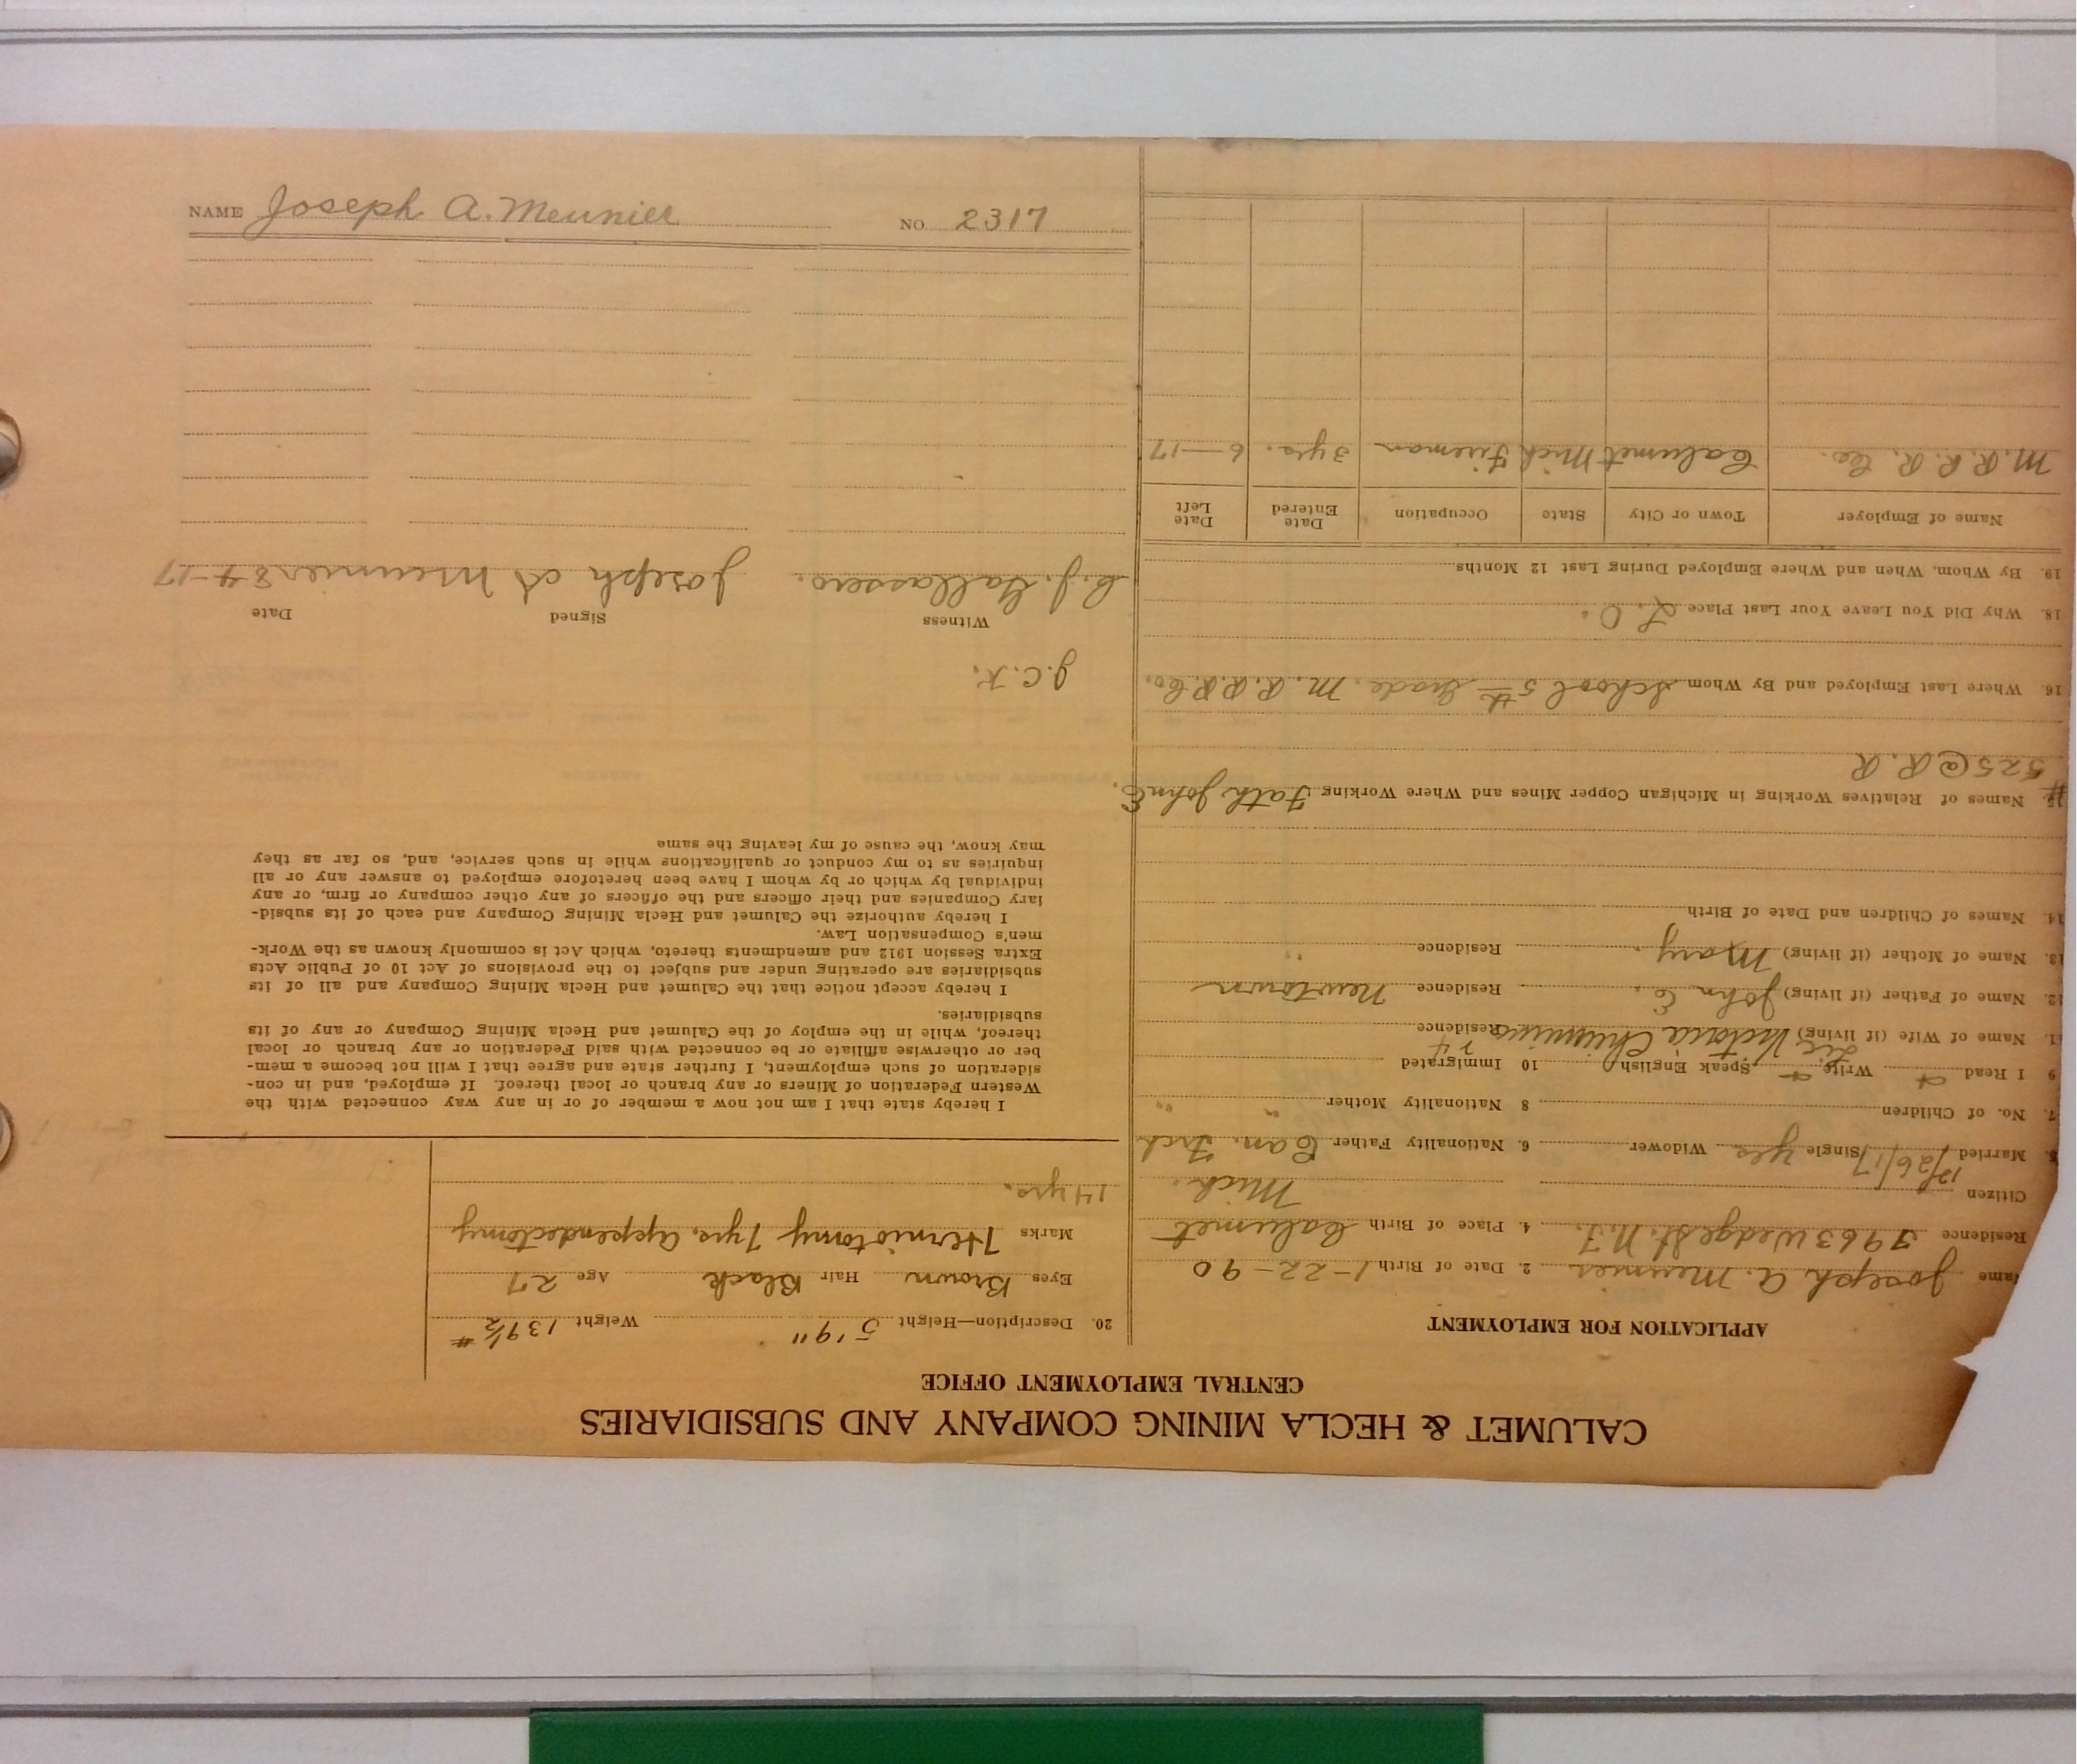 CALUMET & HECLA MINING COMPANY AND SUBSIDIARIES
CENTRAL EMPLOYMENT OFFICE
APPLICATION FOR EMPLOYMENT
Name Joseph A. Meunier 2. Date of Birth 1-22-90
Residence 3963 Wedge St. N.T. 4. Place of Birth Calumet
Citizen Mich.
5. Married 12/26/17 Single yes Widower 6. Nationality Father Can. Frch
7. No. of Children 8 Nationality Mother " "
9 I Read Write Speak English 10 Immigrated
11. Name of Wife (if living) Victoria Residence
12. Name of Father (if living) John E. Residence Newtown
13. Name of Mother (if living) Mary. Residence "
14. Names of Children and Date of Birth
15. Names of Relatives Working in Michigan Copper Mines and Where Working Fath John E.
# 525 @ R. R
16. Where Last Employed and By Whom School 5th Grade. M. R. R. R. Co.
18. Why Did You Leave Your Last Place L. O.
19. By Whom, When and Where Employed During Last 12 Months
Name of Employer Town or City State Occupation Date Entered Date Left
M. R. R. R. Co. Calumet Mich Fireman 3 yrs. 6—17
20. Description—Height 5'9" Weight 139½ #
Eyes Brown Hair Black Age 27
Marks Herniotomy 7 yrs. appendectomy
14 yrs.
I hereby state that I am not now a member of or in any way connected with the
Western Federation of Miners or any branch or local thereof. If employed, and in con-
sideration of such employment, I further state and agree that I will not become a mem-
ber or otherwise affiliate or be connected with said Federation or any branch or local
thereof, while in the employ of the Calumet and Hecla Mining Company or any of its
subsidiaries.
I hereby accept notice that the Calumet and Hecla Mining Company and all of its
subsidiaries are operating under and subject to the provisions of Act 10 of Public Acts
Extra Session 1912 and amendments thereto, which Act is commonly known as the Work-
men's Compensation Law.
I hereby authorize the Calumet and Hecla Mining Company and each of its subsid-
iary Companies and their officers and the officers of any other company or firm, or any
individual by which or by whom I have been heretofore employed to answer any or all
inquiries as to my conduct or qualifications while in such service, and, so far as they
may know, the cause of my leaving the same
J.C.K.
Witness Signed Date
Joseph A Meunier 8-4-17
NAME Joseph A. Meunier NO. 2317